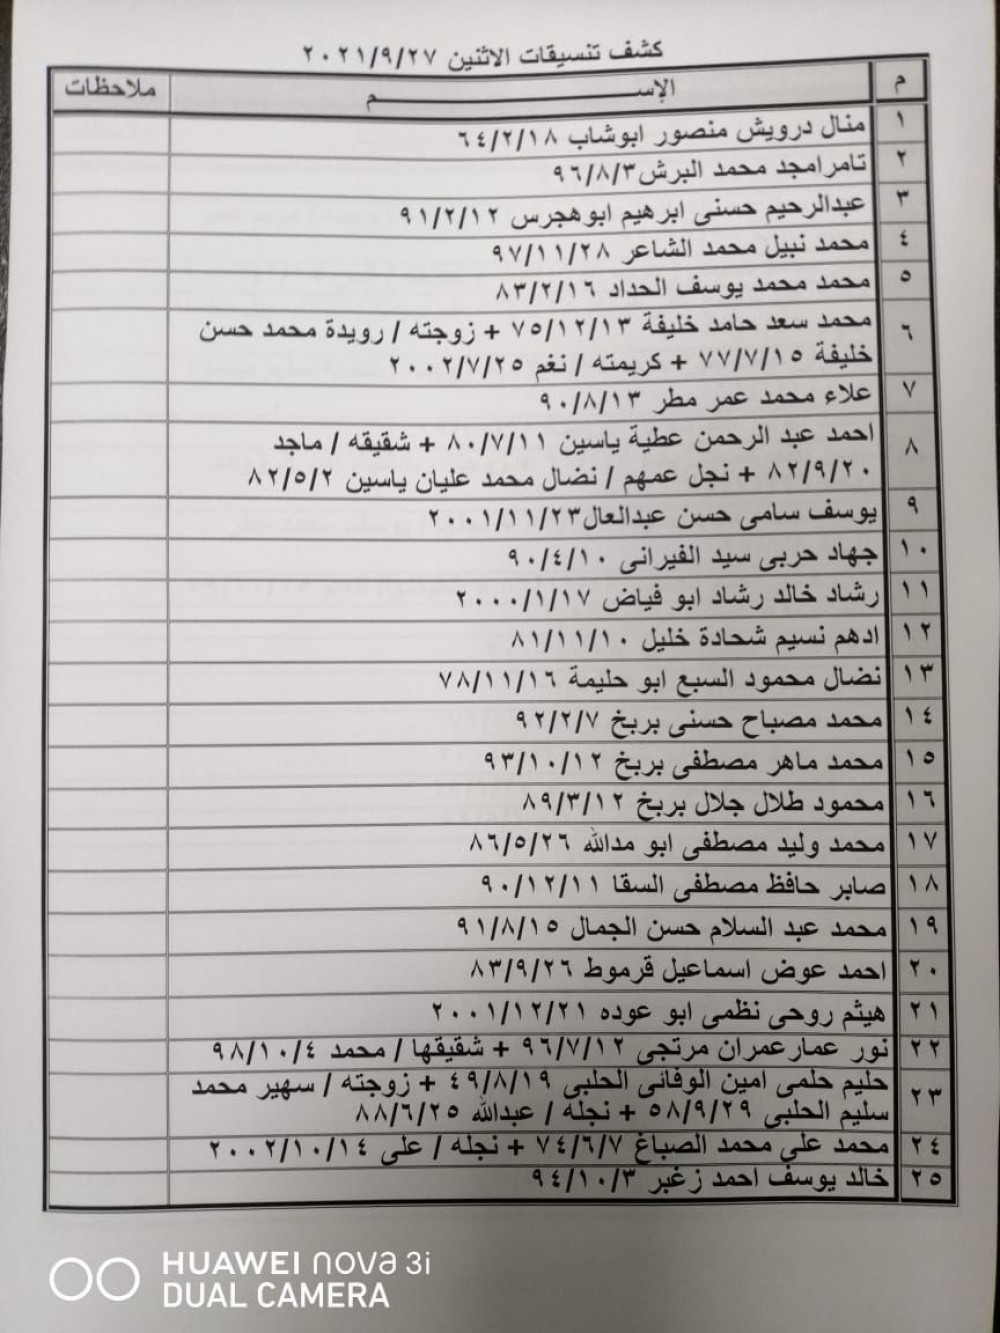 كشف تنسيقات الاثنين ٢٠٢١/٩/٢٧
م الإســـــــــم ملاحظات
١ منال درويش منصور ابوشاب ٦٤/٢/١٨
٢ تامرامجد محمد البرش٩٦/٨/٣
٣ عبدالرحيم حسنى ابرهيم ابوهجرس ٩١/٢/١٢
٤ محمد نبيل محمد الشاعر ٩٧/١١/٢٨
٥ محمد محمد يوسف الحداد ٨٣/٢/١٦
٦ محمد سعد حامد خليفة ٧٥/١٢/١٣ + زوجته / رويدة محمد حسن
خليفة ٧٧/٧/١٥ + كريمته / نغم ٢٠٠٢/٧/٢٥
٧ علاء محمد عمر مطر ٩٠/٨/١٣
٨ احمد عبد الرحمن عطية ياسين ٨٠/٧/١١ + شقيقه / ماجد
٨٢/٩/٢٠ + نجل عمهم / نضال محمد عليان ياسين ٨٢/٥/٢
٩ يوسف سامى حسن عبدالعال٢٠٠١/١١/٢٣
١٠ جهاد حربى سيد الفيرانى ٩٠/٤/١٠
١١ رشاد خالد رشاد ابو فياض ٢٠٠٠/١/١٧
١٢ ادهم نسيم شحادة خليل ٨١/١١/١٠
١٣ نضال محمود السبع ابو حليمة ٧٨/١١/١٦
١٤ محمد مصباح حسنى بربخ ٩٢/٢/٧
١٥ محمد ماهر مصطفى بربخ ٩٣/١٠/١٢
١٦ محمود طلال جلال بربخ ٨٩/٣/١٢
١٧ محمد وليد مصطفى ابو مدالله ٨٦/٥/٢٦
١٨ صابر حافظ مصطفى السقا ٩٠/١٢/١١
١٩ محمد عبد السلام حسن الجمال ٩١/٨/١٥
٢٠ احمد عوض اسماعيل قرموط ٨٣/٩/٢٦
٢١ هيثم روحى نظمى ابو عوده ٢٠٠١/١٢/٢١
٢٢ نور عمارعمران مرتجى ٩٦/٧/١٢ + شقيقها / محمد ٩٨/١٠/٤
٢٣ حليم حلمى امين الوفائى الحلبى ٤٩/٨/١٩ + زوجته / سهير محمد
سليم الحلبى ٥٨/٩/٢٩ + نجله / عبدالله ٨٨/٦/٢٥
٢٤ محمد على محمد الصباغ ٧٤/٦/٧ + نجله / على ٢٠٠٢/١٠/١٤
٢٥ خالد يوسف احمد زغبر ٩٤/١٠/٣
HUAWEI nova 3i
DUAL CAMERA